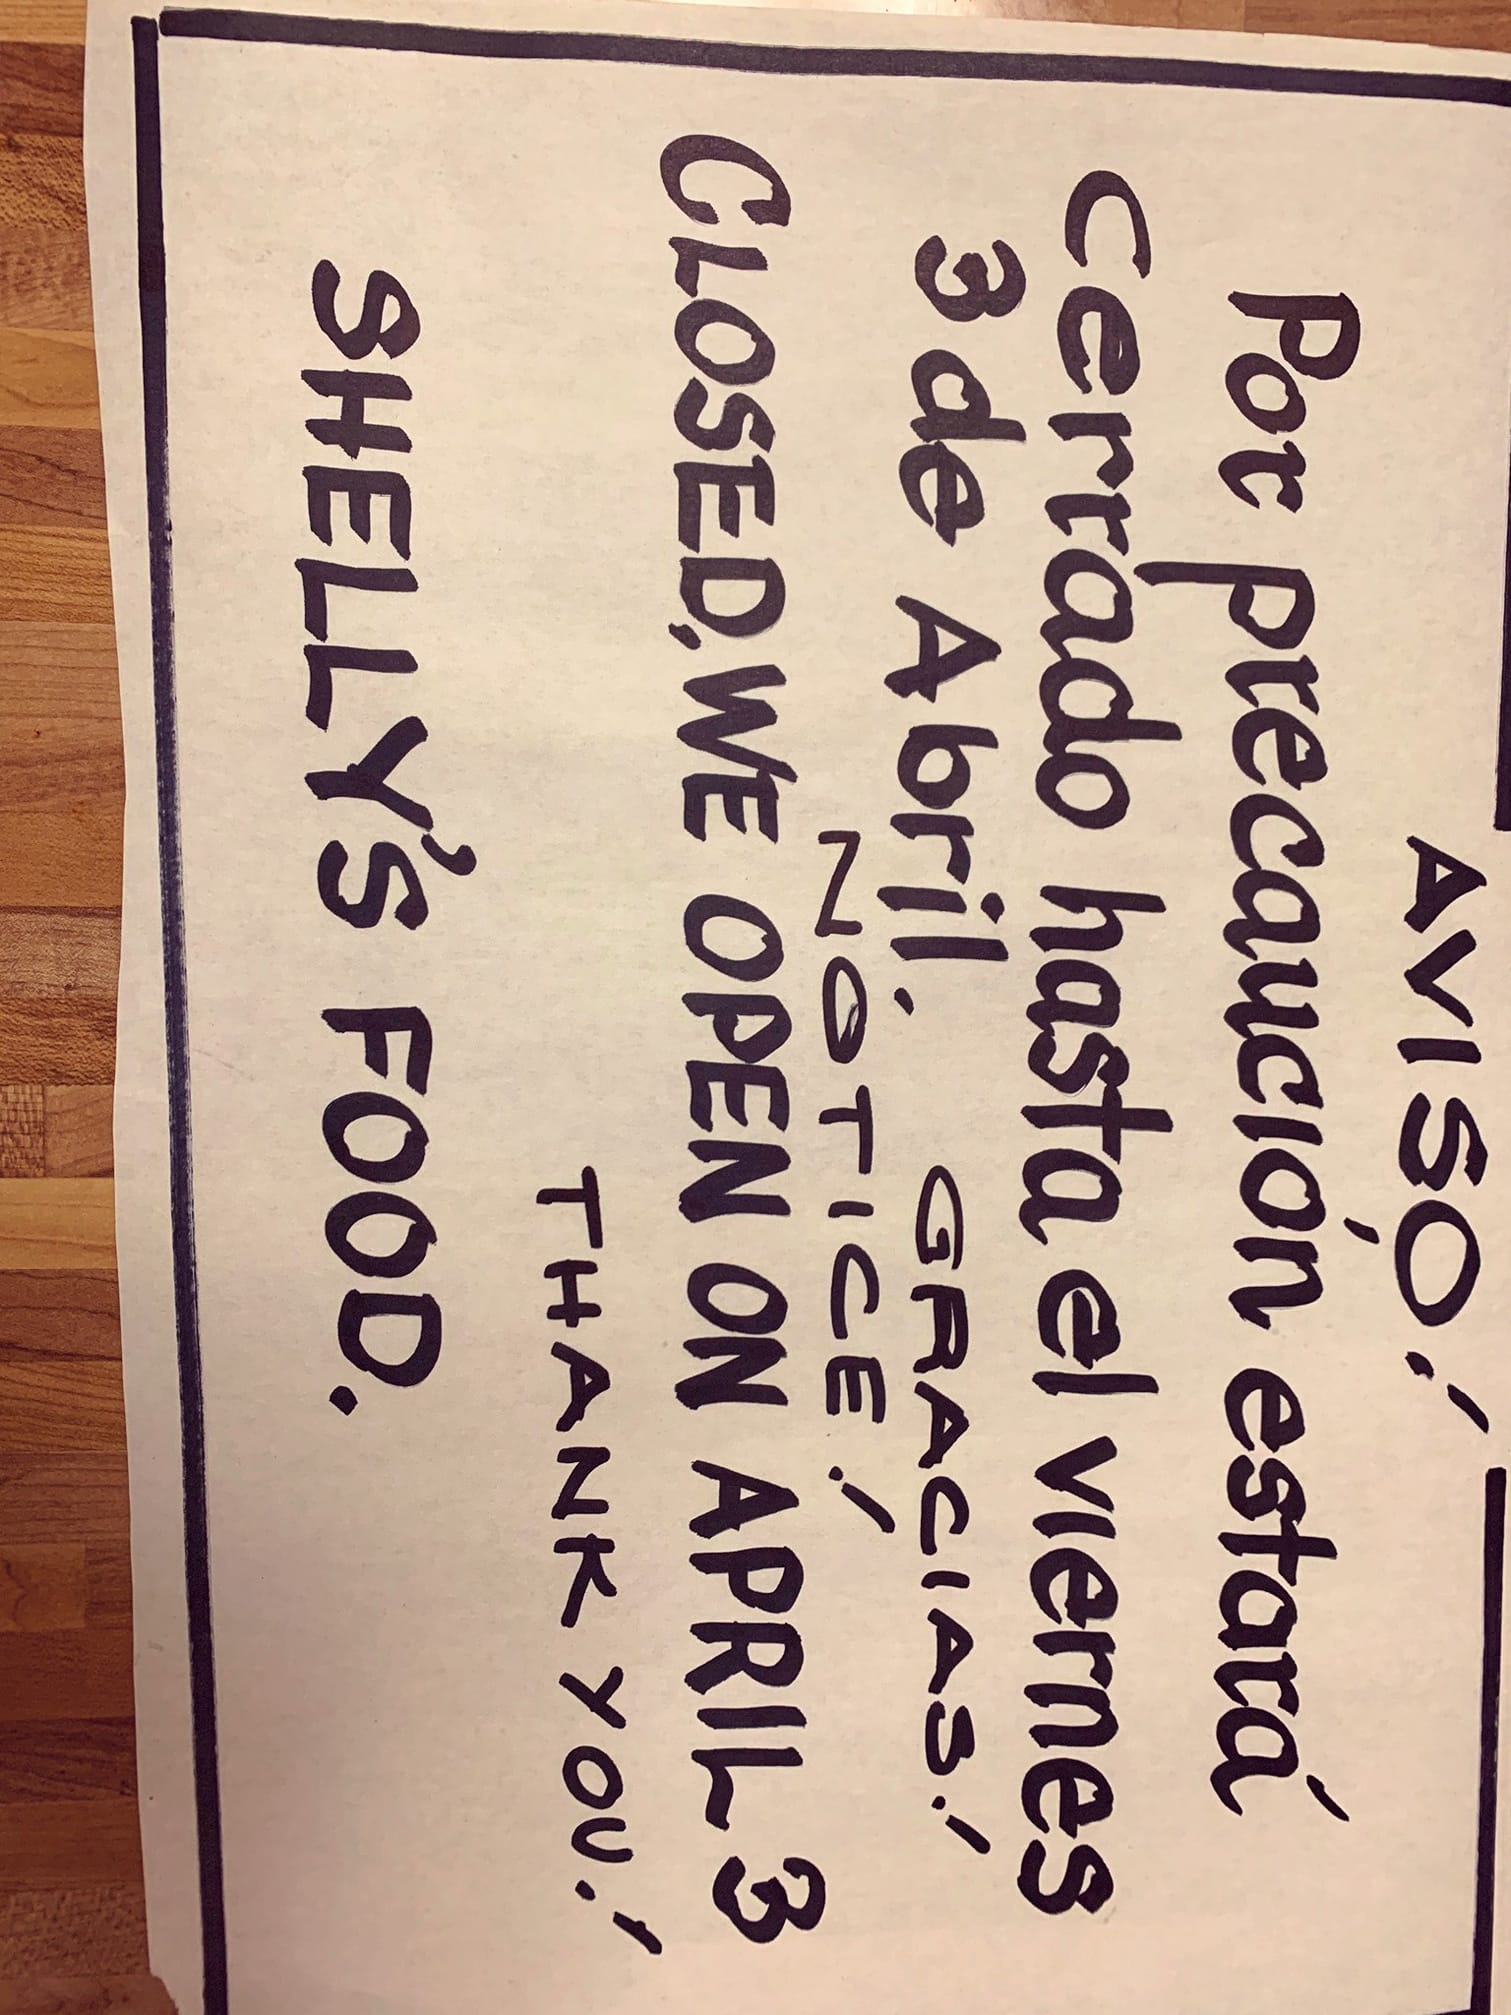 AVISO!
Por precaución estará
cerrado hasta el viernes
3 de Abril. GRACIAS!
NOTICE!
CLOSED, WE OPEN ON APRIL 3
THANK YOU!
SHELLY'S FOOD.